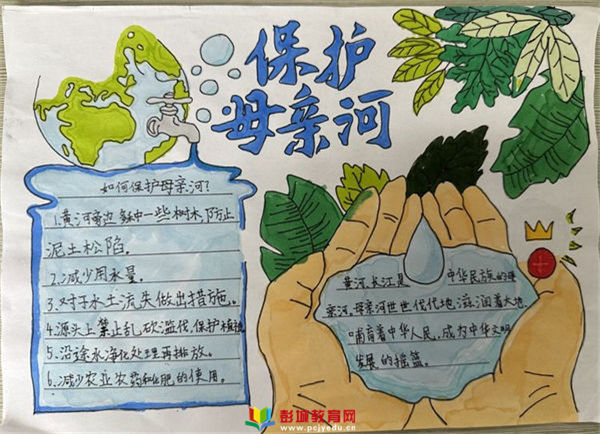 保护
母亲河
如何保护母亲河?
1.黄河旁边多种一些树木,防止
泥土松陷。
2.减少用水量。
3.对于水土流失做出措施。
4.源头上禁止乱砍滥伐,保护植被
5.沿途水净化处理再排放。
6.减少农业农药和化肥的使用。
黄河、长江是 中华民族的母
亲河,母亲河世世代代地滋润着大地,
哺育着中华人民,成为中华文明
发展的摇篮。
彭城教育网
www.pcjyedu.cn